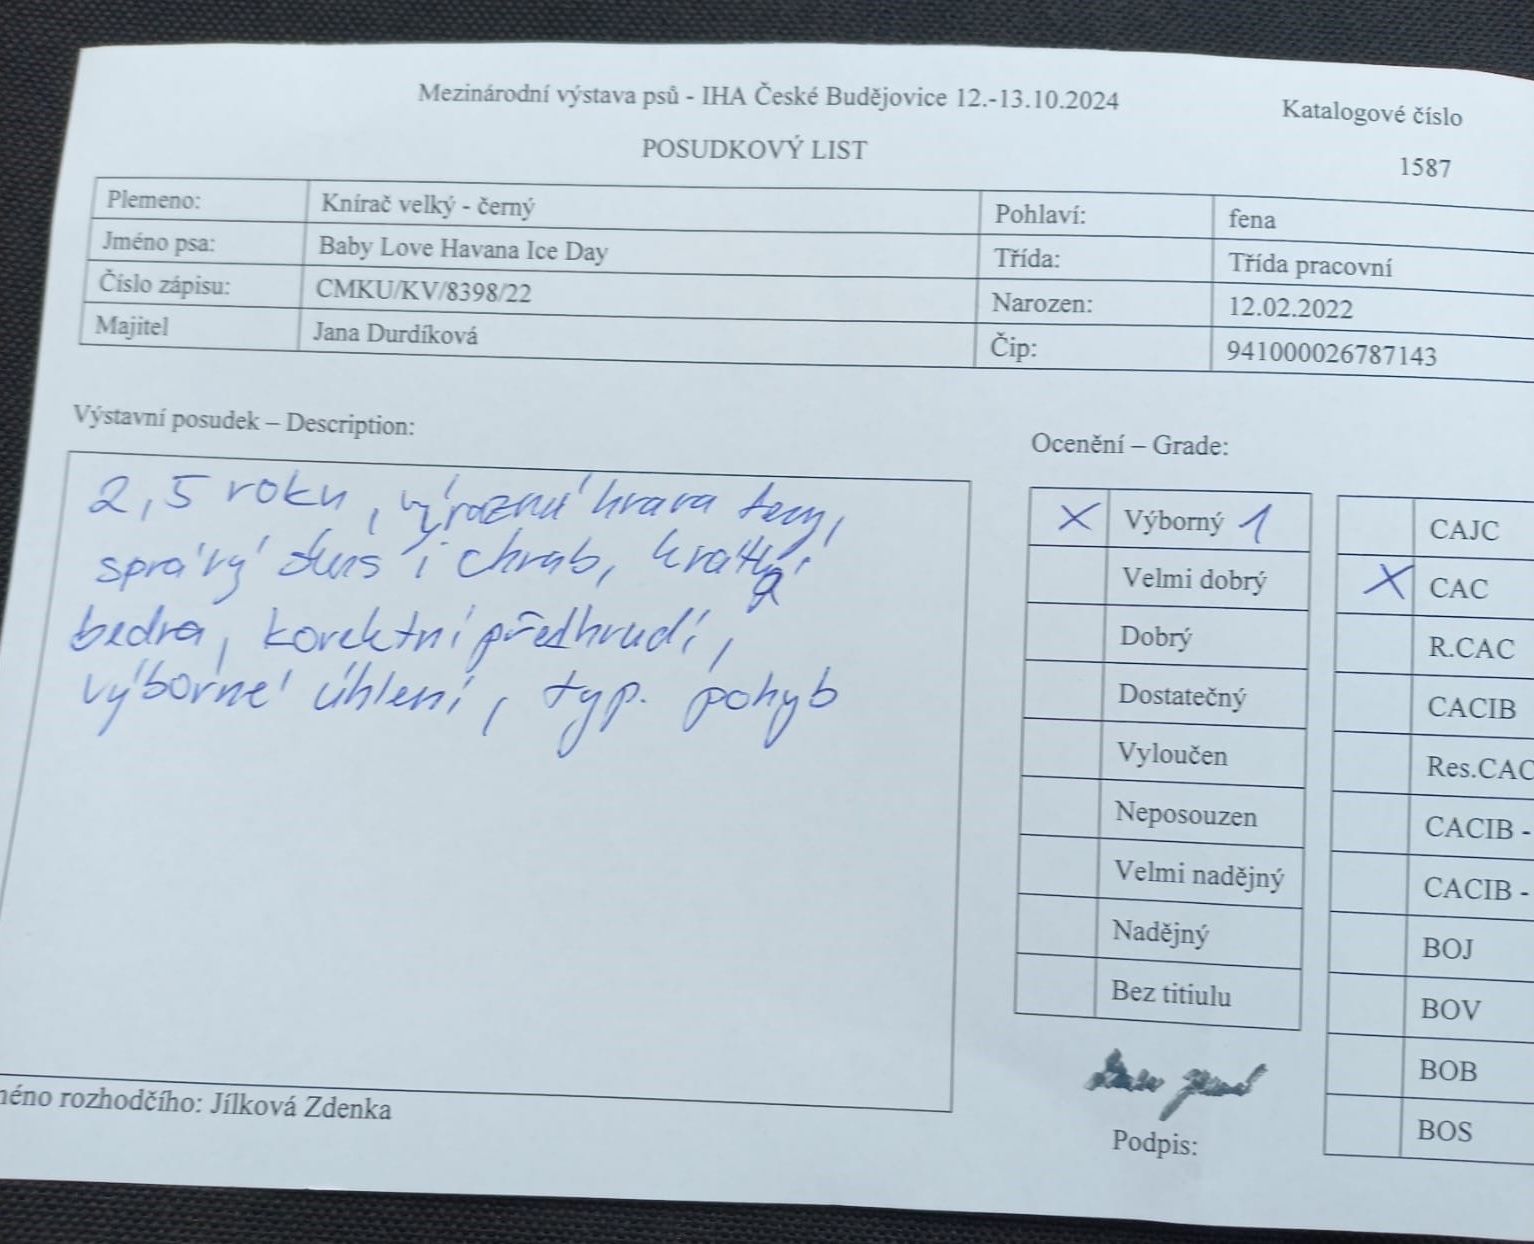 Mezinárodní výstava psů - IHA České Budějovice 12.-13.10.2024
Katalogové číslo
POSUDKOVÝ LIST
1587
Plemeno: Knírač velký - černý Pohlaví: fena
Jméno psa: Baby Love Havana Ice Day Třída: Třída pracovní
Číslo zápisu: CMKU/KV/8398/22 Narozen: 12.02.2022
Majitel Jana Durdíková Čip: 941000026787143
Výstavní posudek – Description:
2,5 roku, výrazná hrava
správý skus i chrub, kratka
bedra, korektní předhrudí,
výborné úhlení, typ. pohyb
néno rozhodčího: Jílková Zdenka
Ocenění – Grade:
X Výborný 1
Velmi dobrý
Dobrý
Dostatečný
Vyloučen
Neposouzen
Velmi nadějný
Nadějný
Bez titiulu
CAJC
X CAC
R.CAC
CACIB
Res.CAC
CACIB -
CACIB -
BOJ
BOV
BOB
BOS
Podpis: